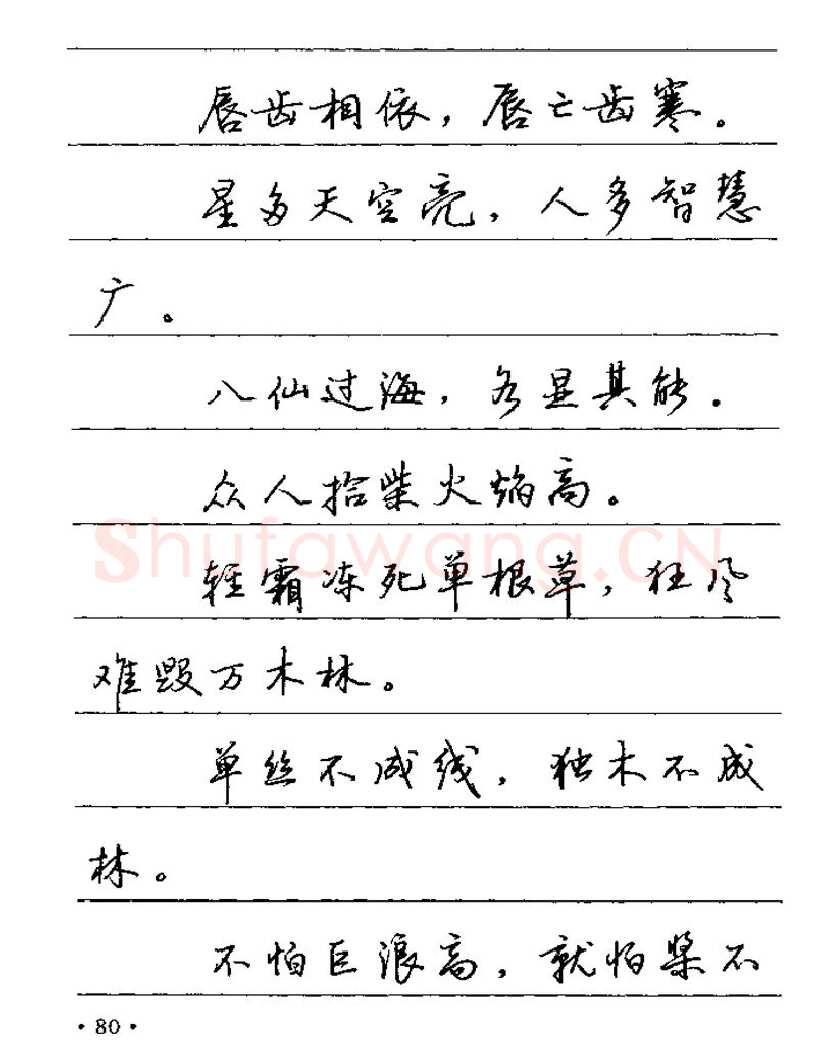 唇齿相依，唇亡齿寒。
星多天空亮，人多智慧
广。
八仙过海，各显其能。
众人拾柴火焰高。
Shufawang.CN
轻霜冻死单根草，狂风
难毁万木林。
单丝不成线，独木不成
林。
不怕巨浪高，就怕桨不
·80·